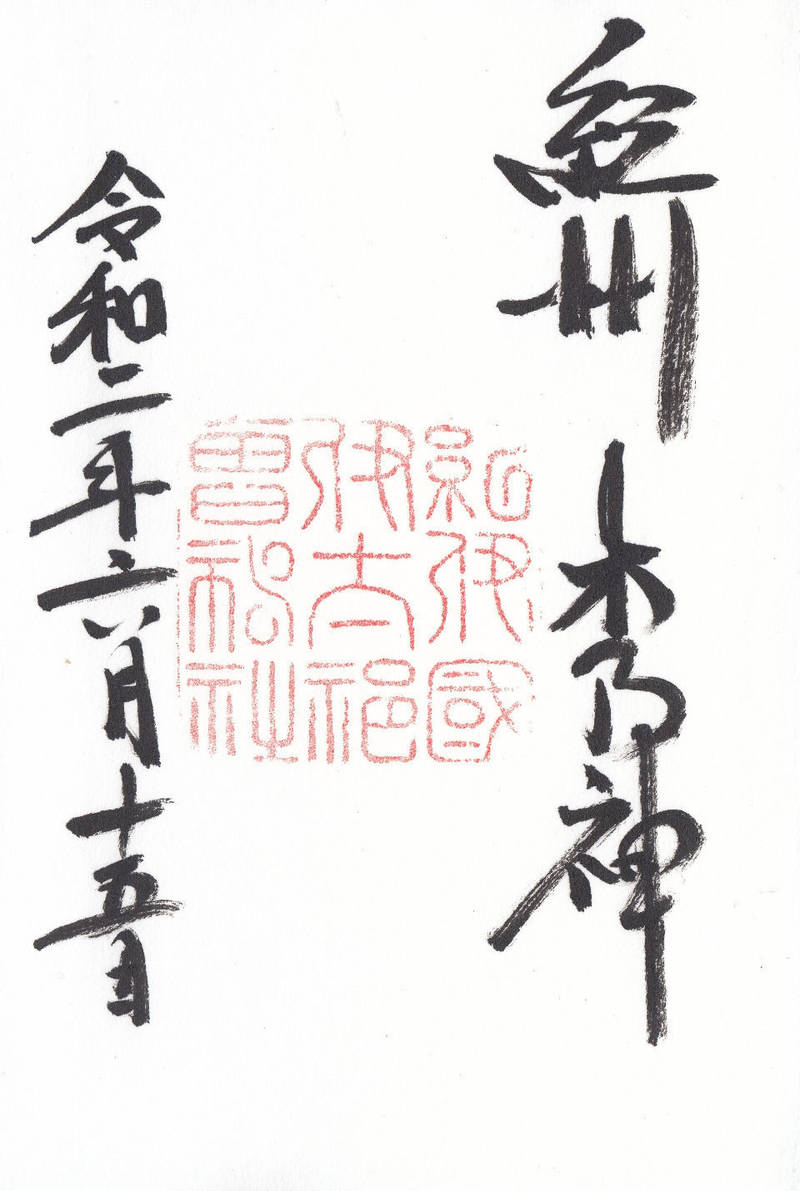 紀州 木乃神
紀伊國
伊太祁
曽神社
令和二年六月十五日